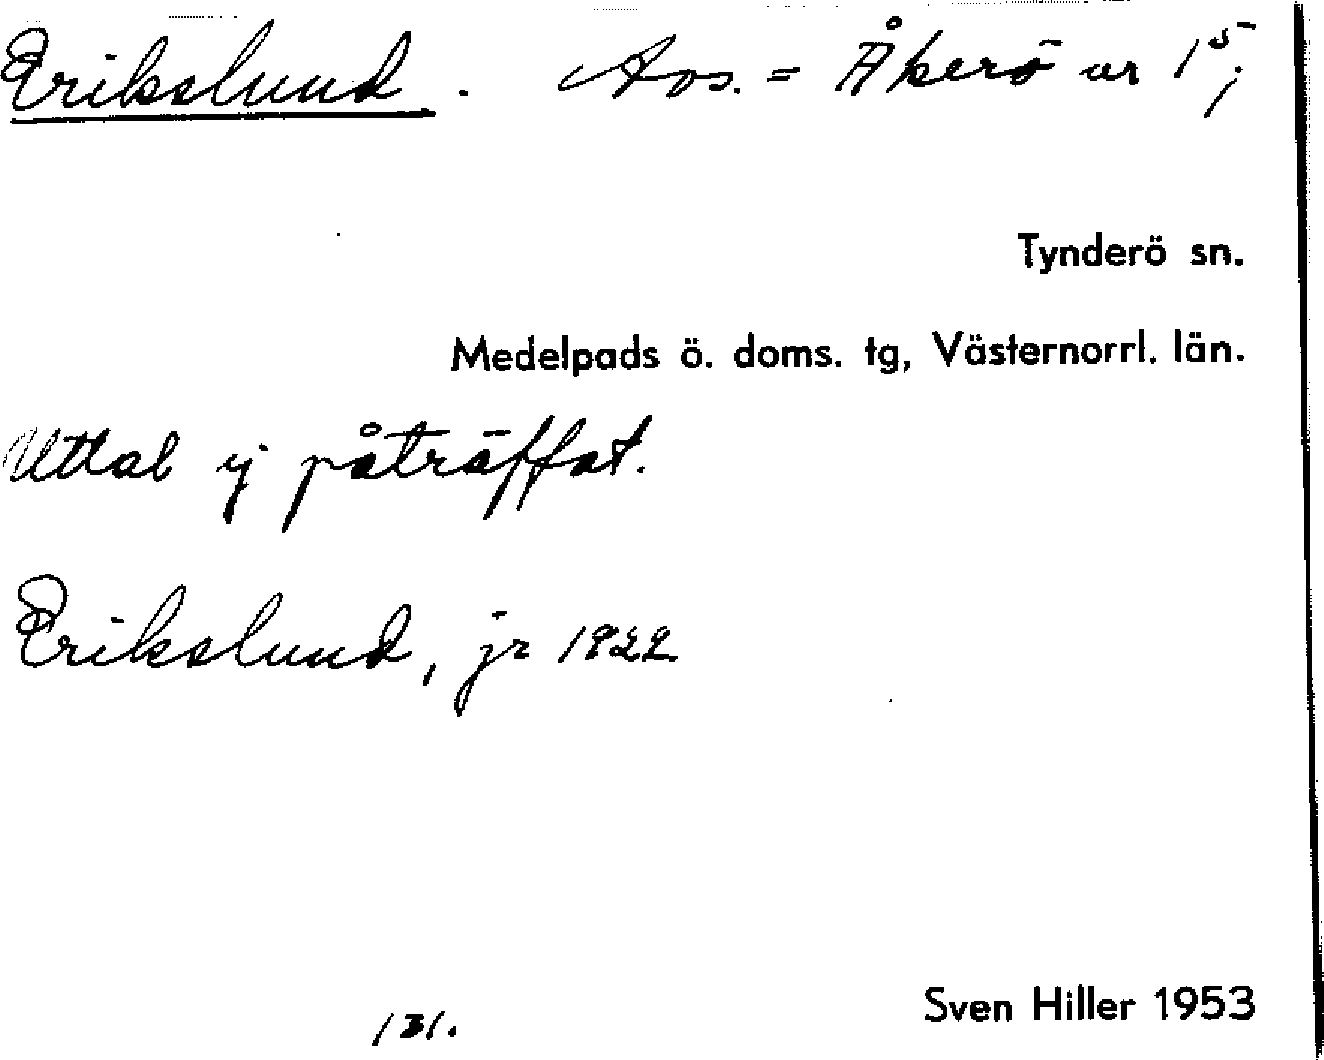 Erikslund. Avs. = Åkerö nr 1⁵;
Tynderö sn.
Medelpads ö. doms. tg, Västernorrl. län.
Uttal ej påträffat.
Erikslund, jr 1822
131.
Sven Hiller 1953